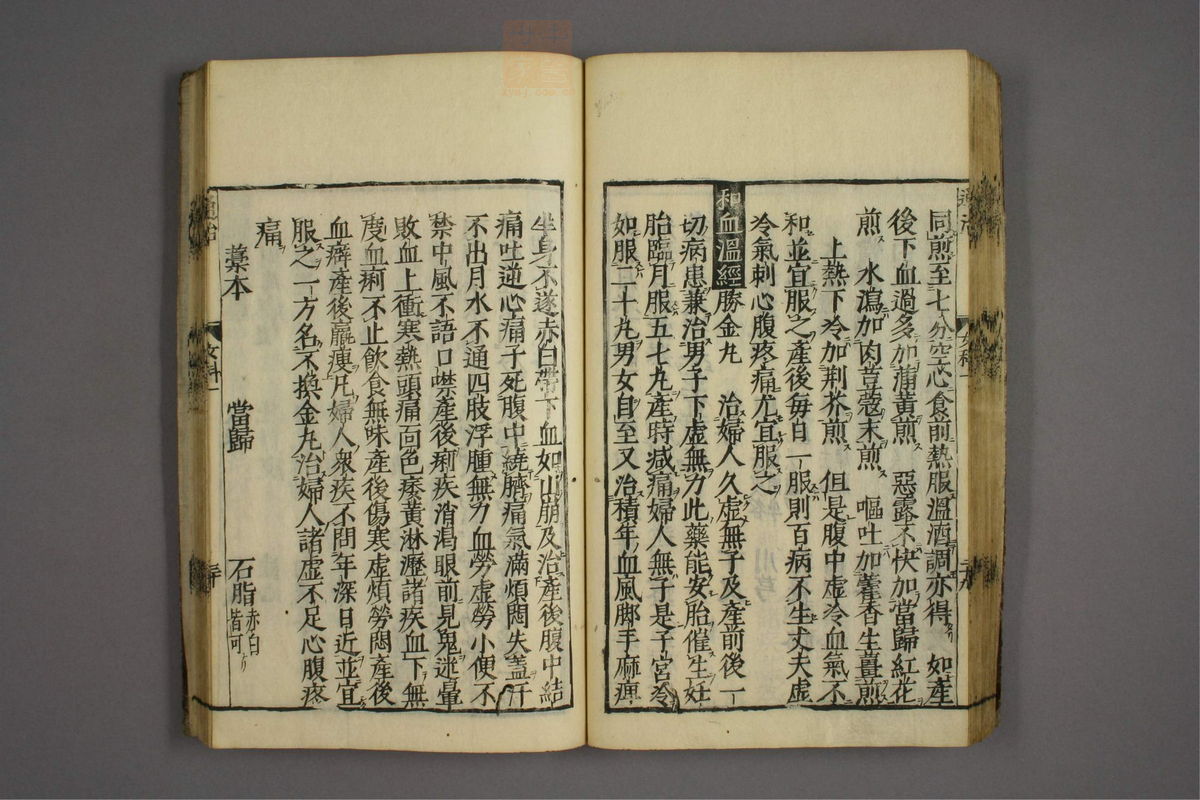 同煎至七分空心食前熱服溫酒調亦得 如產
後下血過多加蒲黃煎 惡露不快加當歸紅花
煎 水瀉加肉荳蔻末煎 嘔吐加藿香生薑煎
上熱下冷加荆芥煎 但是腹中虛冷血氣不
和並宜服之產後每日一服則百病不生丈夫虛
冷氣刺心腹疼痛尤宜服之
和血溫經勝金丸 治婦人久虛無子及產前後一
切病患兼治男子下虛無力此藥能安胎催生妊
胎臨月服五七丸產時减痛婦人無子是子宮冷
如服二十丸男女自至又治積年血風脚手麻痺
半身不遂赤白帶下血如山崩及治產後腹中結
痛吐逆心痛子死腹中繞臍痛氣滿煩悶失蓋汗
不出月水不通四肢浮腫無力血勞虛勞小便不
禁中風不語口噤產後痢疾消渴眼前見鬼迷暈
敗血上衝寒熱頭痛面色痿黃淋瀝諸疾血下無
度血痢不止飲食無味產後傷寒虛煩勞悶產後
血癖產後羸瘦凡婦人衆疾不問年深日近並宜
服之一方名不換金丸治婦人諸虛不足心腹疼
痛
藁本 當歸 石脂赤白皆可